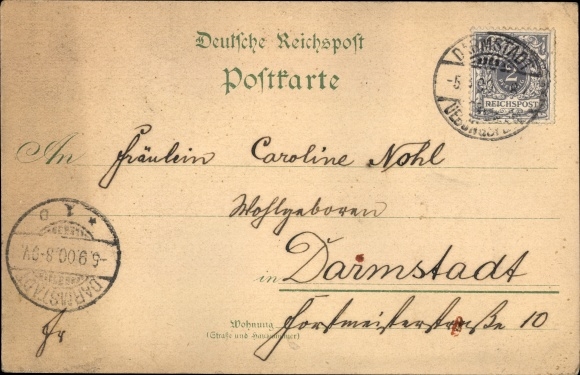 Deutsche Reichspost
Postkarte
DARMSTADT
-5.
2
REICHSPOST
An Fräulein Caroline Nohl
Wohlgeboren
in Darmstadt
* 1 o
-5.9.00.8-9V
DARMSTADT
Wohnung Forstmeisterstraße 10
(Straße und Hausnummer)